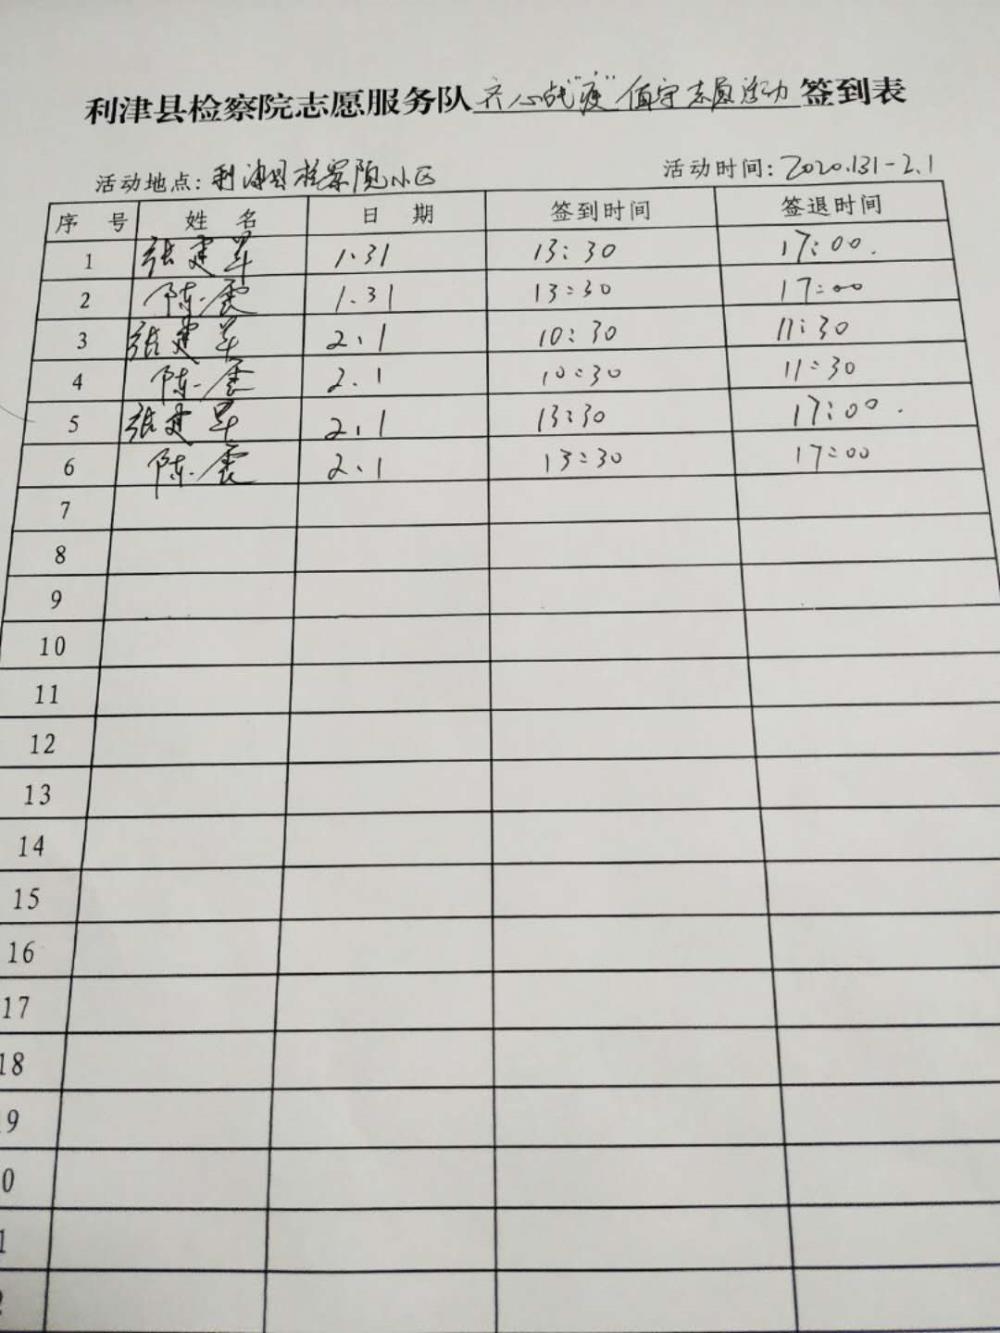 利津县检察院志愿服务队齐心战"疫"值守志愿活动签到表
活动地点:利津县检察院小区 活动时间:2020.1.31-2.1
序 号 姓 名 日 期 签到时间 签退时间
1 张建军 1.31 13:30 17:00.
2 陈震 1.31 13:30 17:00
3 张建军 2.1 10:30 11:30
4 陈震 2.1 10:30 11:30
5 张建军 2.1 13:30 17:00.
6 陈震 2.1 13:30 17:00
7
8
9
10
11
12
13
14
15
16
17
18
9
0
1
2